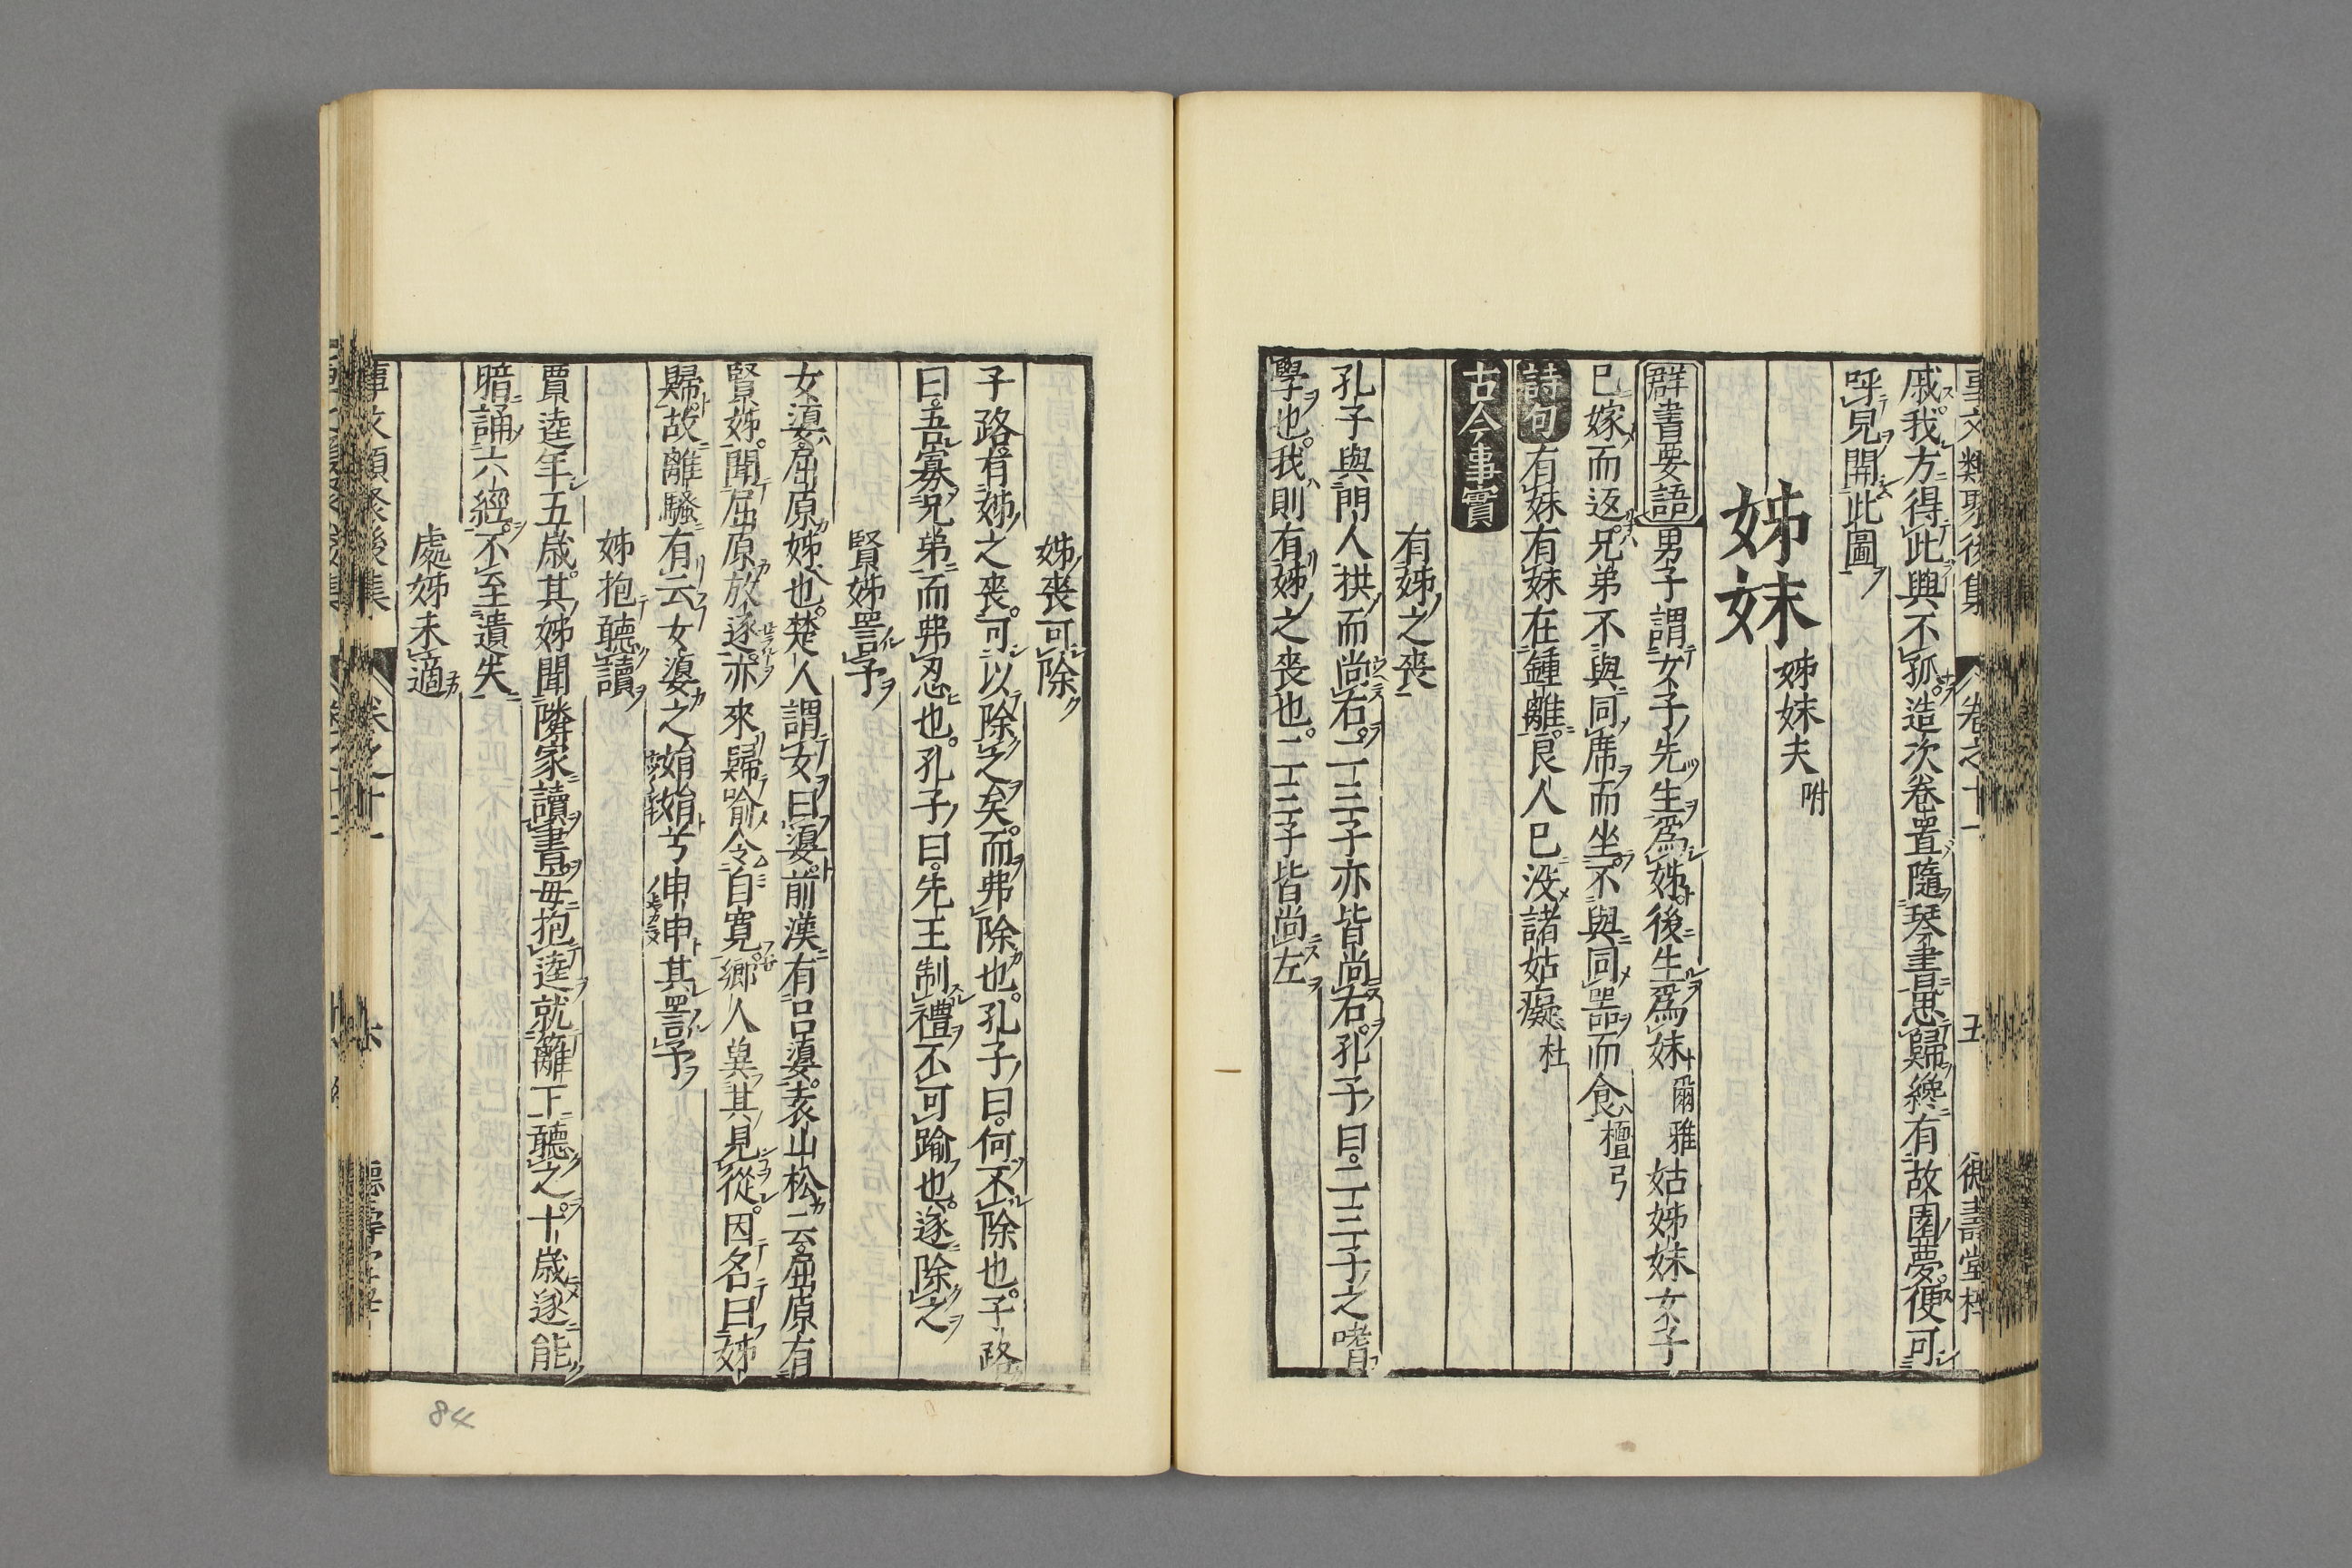 戚我方得此與不孤造次卷置隨琴書思歸纔有故園夢便可
呼見開此圖
姊妹夫附
姊妹
群書要語男子謂女子先生爲姊後生爲妹爾雅姑姊妹女子
已嫁而返兄弟不與同席而坐不與同噐而食檀弓
詩句有妹有妹在鍾離良人已没諸姑癡杜
古今事實
有姊之喪
孔子與門人拱而尚右二三子亦皆尚右孔子曰二三子之嗜
學也我則有姊之喪也二三子皆尚左
姊喪可除
子路有姊之喪可以除之矣而弗除也孔子曰何不除也子路
曰吾寡兄弟而弗忍也孔子曰先王制禮不可踰也遂除之
賢姊詈予
女嬃屈原姊也楚人謂女曰嬃前漢有呂嬃袁山松云屈原有
賢姊聞屈原放逐亦來歸喻令自寛郷人兾其見從因名曰姊
歸故離騷有云女嬃之婵媛兮申申其詈予
姊抱聽讀
賈逵年五歳其姊聞隣家讀書毎抱逵就籬下聽之十歳遂能
暗誦六經不至遺失
處姊未適